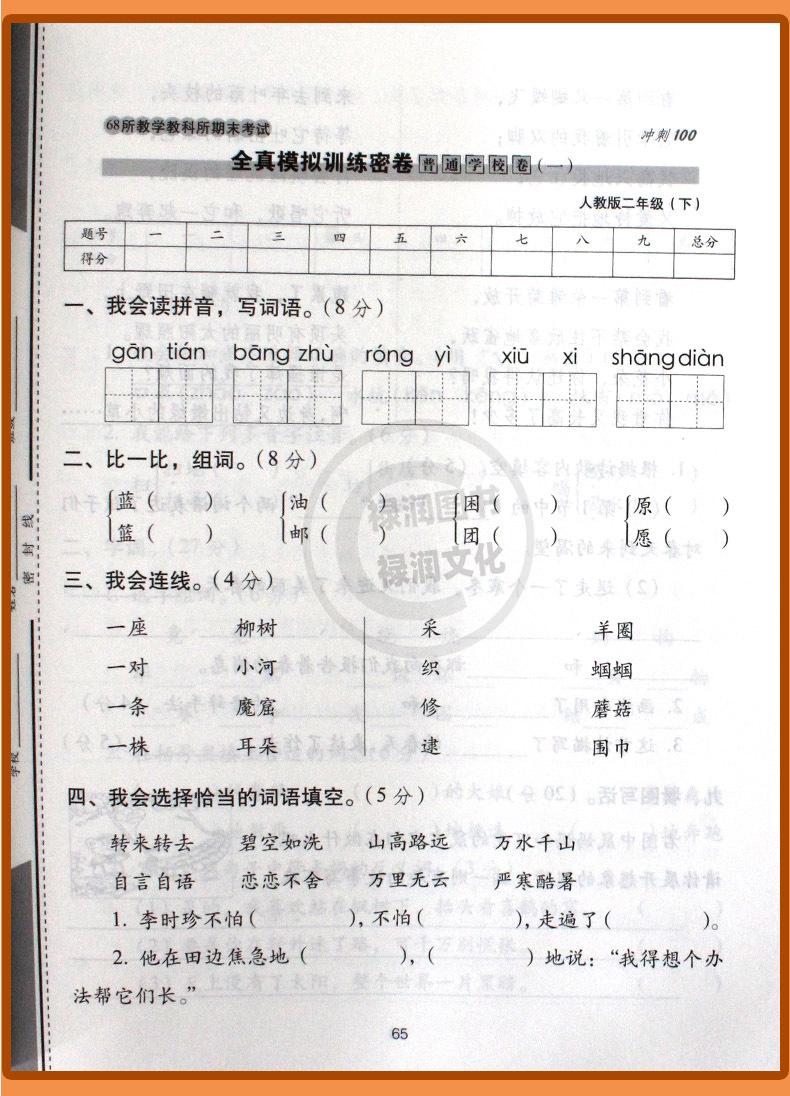 68所教学教科所期末考试
冲刺100
全真模拟训练密卷 普通学校卷(一)
人教版二年级(下)
题号 一 二 三 四 五 六 七 八 九 总分
得分
一、我会读拼音，写词语。(8分)
gān tián bāng zhù róng yì xiū xi shāng diàn
二、比一比，组词。(8分)
蓝( ) 油( ) 困( ) 原( )
篮( ) 邮( ) 团( ) 愿( )
三、我会连线。(4分)
一座 柳树 采 羊圈
一对 小河 织 蝈蝈
一条 魔窟 修 蘑菇
一株 耳朵 逮 围巾
四、我会选择恰当的词语填空。(5分)
转来转去 碧空如洗 山高路远 万水千山
自言自语 恋恋不舍 万里无云 严寒酷暑
1. 李时珍不怕( ),不怕( ),走遍了( )。
2. 他在田边焦急地( ),( )地说：“我得想个办
法帮它们长。”
65
密封线
学校
姓名
禄润图书
禄润文化